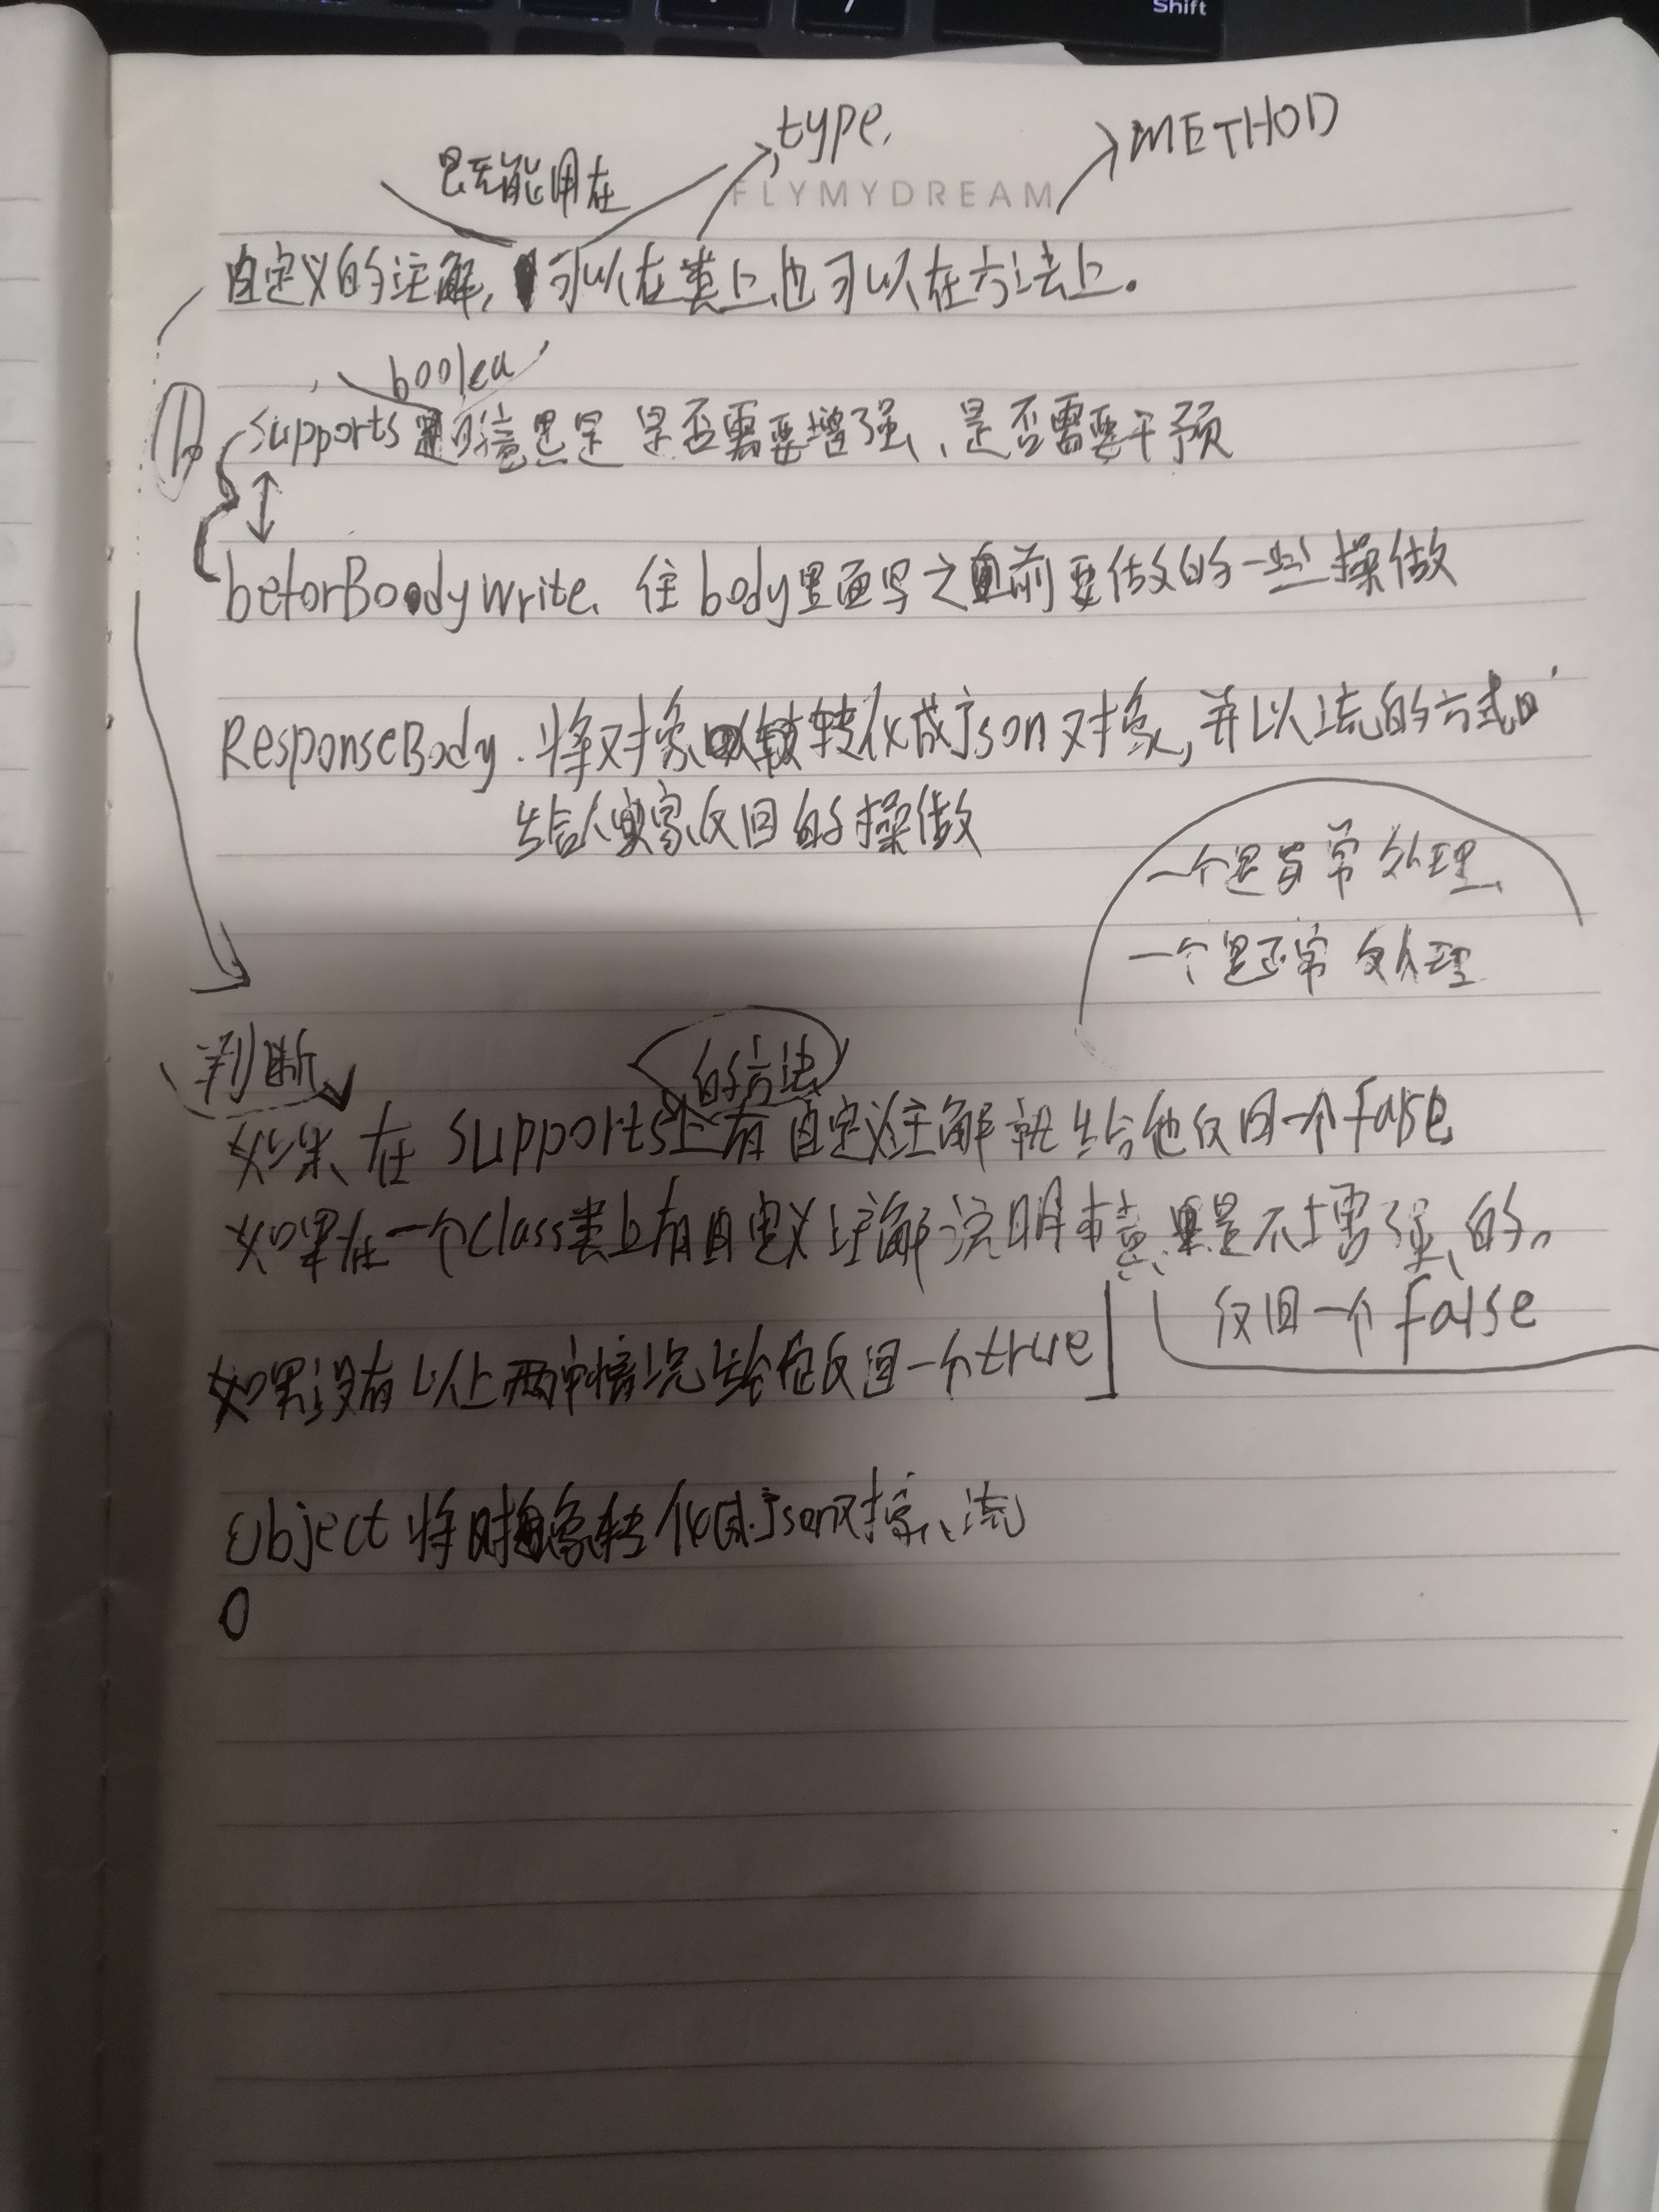 Shift
type.
METHOD
是否能用在
FLYMYDREAM
自定义的注解, 可以在类上,也可以在方法上。
boolea
supports 意思是 是否需要增强、是否需要干预
beforBoodywrite. 往body里面写之前要做的一些操做
ResponseBody. 将对象转化成json对象,并以流的方式
给人家返回的操做
一个是异常处理、
一个是正常处理
判断
的方法
如果、在supports上有自定义注解就给他返回一个false
如果在一个class类上有自定义注解说明本意是不增强的。
返回一个false
如果没有以上两种情况给他返回一个true
Object 将对象转化成json对象、流
O